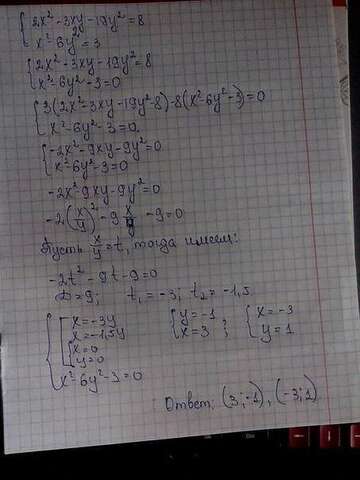 {2x² - 3xy - 19y² = 8
{x² - 6y² = 3
{2x² - 3xy - 19y² = 8
{x² - 6y² - 3 = 0
{3(2x² - 3xy - 19y² - 8) - 8(x² - 6y² - 3) = 0
{x² - 6y² - 3 = 0
{-2x² - 9xy - 9y² = 0
{x² - 6y² - 3 = 0
-2x² - 9xy - 9y² = 0
-2(x/y)² - 9 x/y - 9 = 0
Пусть x/y = t, тогда имеем:
-2t² - 9t - 9 = 0
D = 9; t₁ = -3; t₂ = -1,5
{[x = -3y {y = -1 {x = -3
x = -1,5y {x = 3 ; {y = 1
{x = 0
{y = 0
{x² - 6y² - 3 = 0
Ответ: (3; -1), (-3; 1)